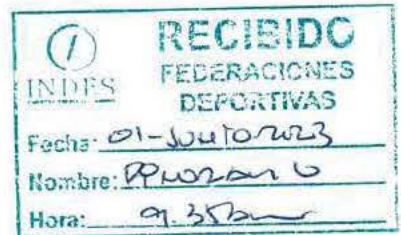 INDES
RECIBIDO
FEDERACIONES
DEPORTIVAS
Fecha: 01-JUNIO-2023
Nombre:
Hora: 9:35am